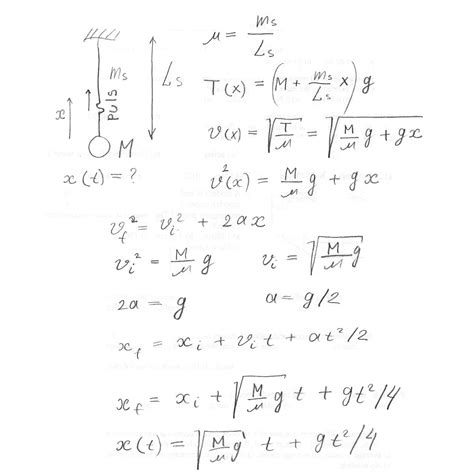 μ = ms/Ls
ms
Ls
T(x) = (M + ms/Ls x) g
PULS
x
v(x) = √(T/μ) = √(M/μ g + gx)
M
x(t) = ?
v²(x) = M/μ g + gx
vf² = vi² + 2ax
vi² = M/μ g    vi = √(M/μ g)
2a = g    a = g/2
xf = xi + vi t + at²/2
xf = xi + √(M/μ g) t + gt²/4
x(t) = √(M/μ g) t + gt²/4